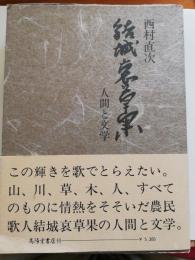 西村直次
結城哀草果
人間と文学
この輝きを歌でとらえたい。
山、川、草、木、人、すべて
のものに情熱をそそいだ農民
歌人結城哀草果の人間と文学。
高陽堂書店刊